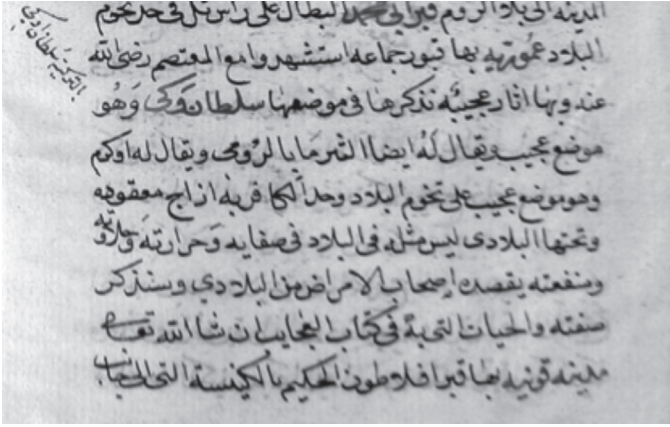 المدينه الى بلاد الروم قبر ابى محمد البطال على راس تل فى حد تخوم
البلاد عموريه بها قبور جماعه استشهدوا مع المعتصم رضى الله
عنه وبها اثار عجيبه نذكرها فى موضعها سلطان وكى وهو
موضع عجيب ويقال له ايضا الثرما بالرومى ويقال له اوكرم
وهو موضع عجيب على تخوم البلاد وحد الكافر به ازاج معقوده
وتحتها البلادى ليس مثله فى البلاد فى صفايه وحرارته وحلاوته
ومنفعته يقصده اصحاب الامراض من البلاد دي وسنذكر
صفته والحيات التى به فى كتاب العجايب ان شا الله تعالى
مدينه قونيه بها قبر افلاطون الحكيم بالكنيسة التى الى جانب
بالتركية سلطان اوكى